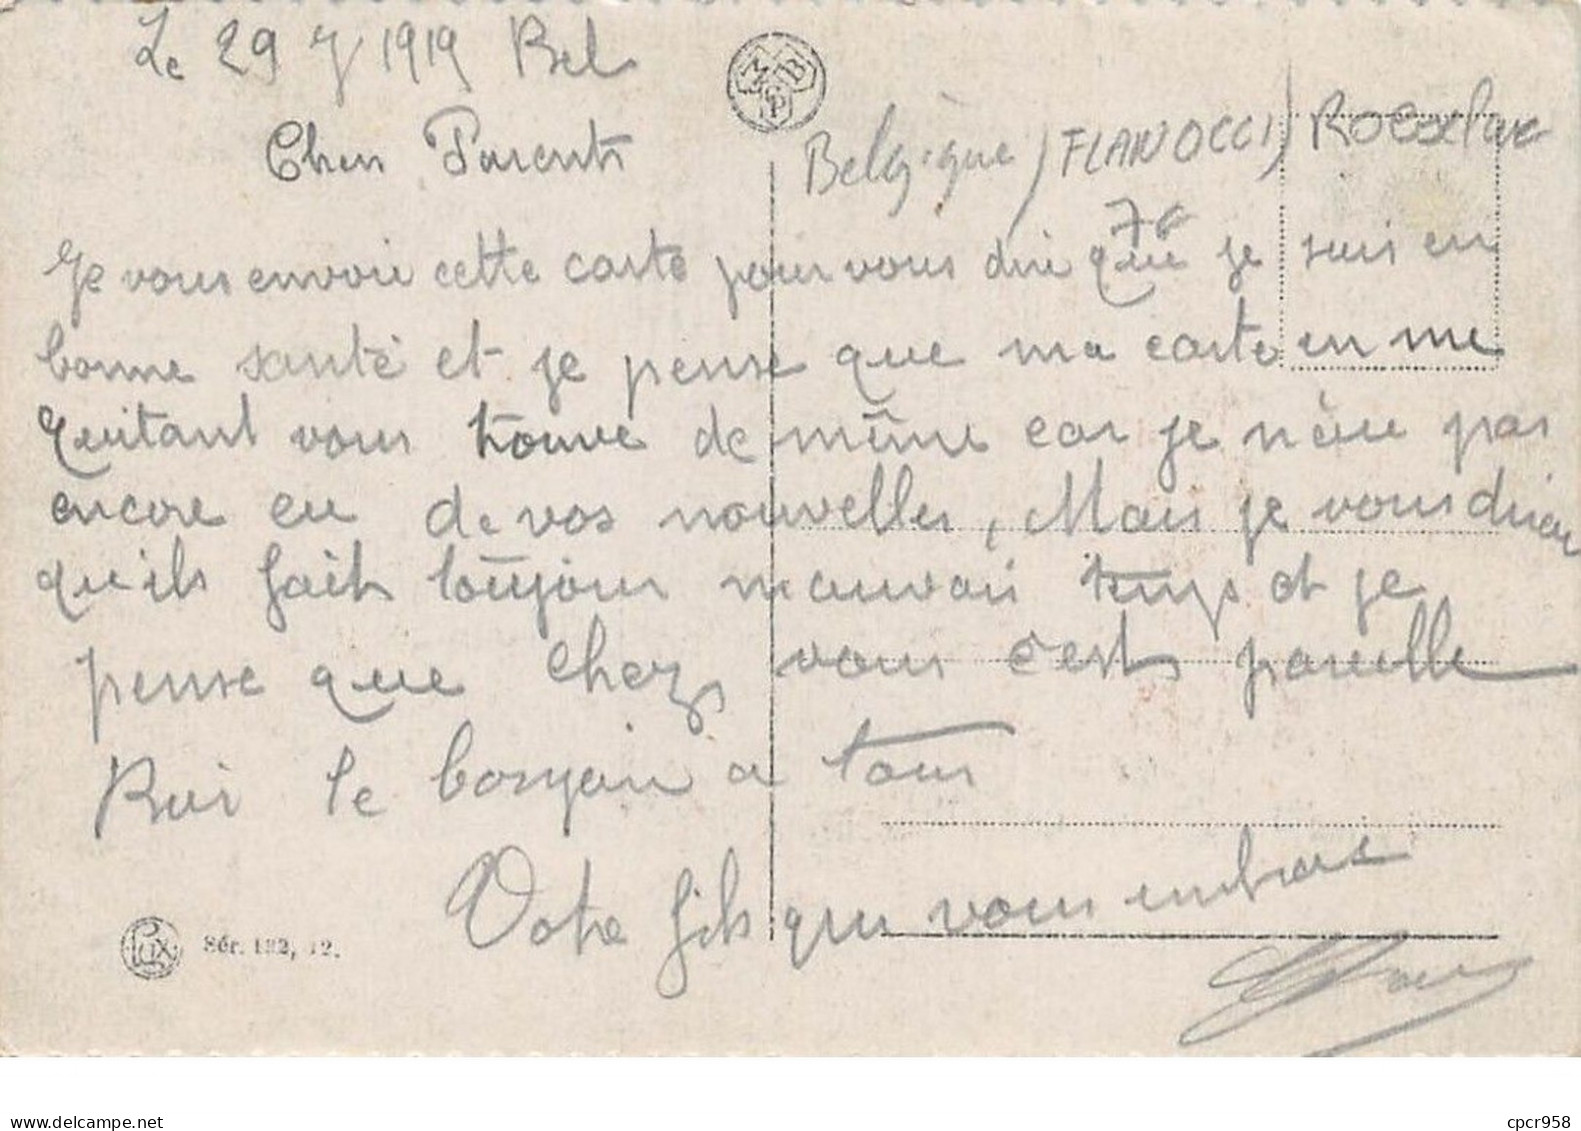 Le 29 7 1919 Bel
Belgique / FLANOCCI /
7e
Chers Parents
Je vous envoie cette carte pour vous dire que je suis en
bonne santé et je pense que ma carte en me
quitant vous trouve de même car je n'aie pas
encore eu de vos nouvelles, Mais je vous dirai
qu'ils fait toujour mauvai temps et je
pense que chez vous c'est pareille
le bonjour a tous
Votre fils qui vous embrase
Lux Sér. 132, 12.
cpcr958